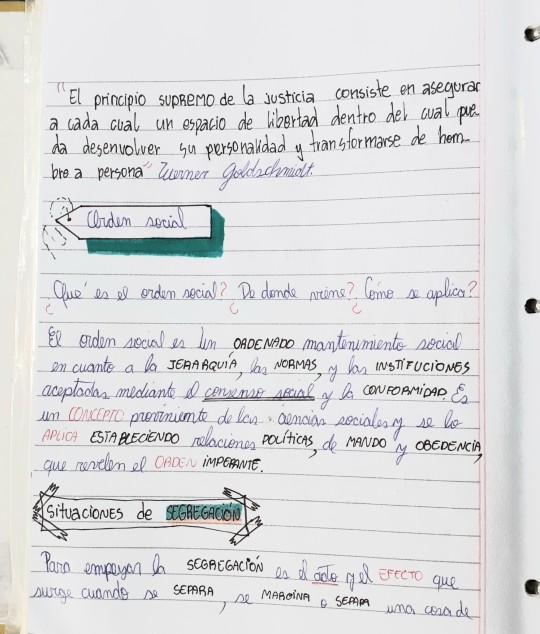 "El principio supremo de la justicia consiste en asegurar
a cada cual un espacio de libertad dentro del cual pue-
da desenvolver su personalidad y transformarse de hom-
bre a persona" Werner Goldschmidt.
Orden social
¿Que' es el orden social? ¿De donde viene? ¿Como se aplica?
El orden social es un ORDENADO mantenimiento social
en cuanto a la JERARQUÍA, las NORMAS, y las INSTITUCIONES
aceptadas mediante el consenso social y la CONFORMIDAD. Es
un CONCEPTO proviniente de las ciencias sociales y se lo
APLICA ESTABLECIENDO relaciones POLÍTICAS, de MANDO y OBEDENCIA,
que revelen el ORDEN IMPERANTE.
Situaciones de SEGREGACIÓN
Para empezar la SEGREGACIÓN es el acto y el EFECTO que
surge cuando se SEPARA, se MARGINA o SEPARA una cosa de